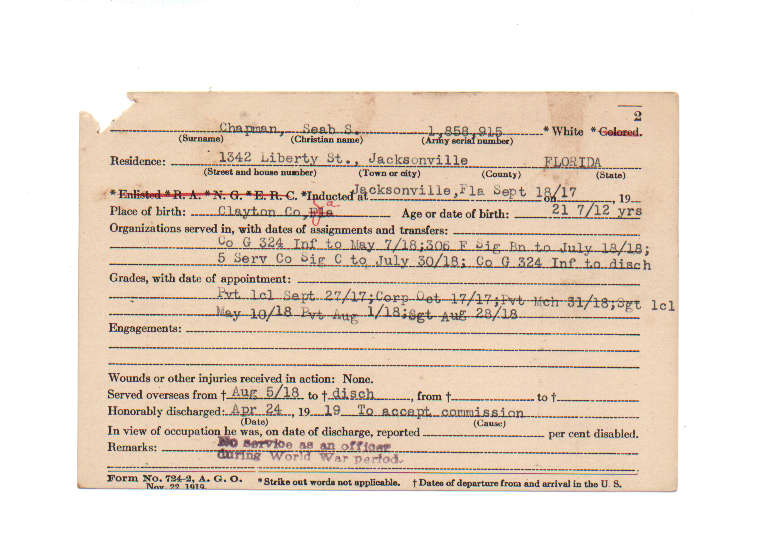 2
Chapman, Seab S. 1,858,915 * White * Colored.
(Surname) (Christian name) (Army serial number)
Residence: 1342 Liberty St., Jacksonville FLORIDA
(Street and house number) (Town or city) (County) (State)
* Enlisted * R. A. * N. G. * E. R. C. * Inducted at Jacksonville,Fla Sept 18/17 on , 19
Place of birth: Clayton Co, Fla Ga Age or date of birth: 21 7/12 yrs
Organizations served in, with dates of assignments and transfers:
Co G 324 Inf to May 7/18;306 F Sig Bn to July 18/18;
5 Serv Co Sig C to July 30/18; Co G 324 Inf to disch
Grades, with date of appointment:
Pvt 1cl Sept 27/17;Corp Oct 17/17;Pvt Mch 31/18;Sgt 1cl
May 10/18 Pvt Aug 1/18;Sgt Aug 28/18
Engagements:
Wounds or other injuries received in action: None.
Served overseas from † Aug 5/18 to † disch , from † to †
Honorably discharged: Apr 24 , 19 19 To accept commission
(Date) (Cause)
In view of occupation he was, on date of discharge, reported per cent disabled.
Remarks: No service as an officer
during World War period.
Form No. 724-2, A. G. O. * Strike out words not applicable. † Dates of departure from and arrival in the U. S.
Nov. 22, 1919.